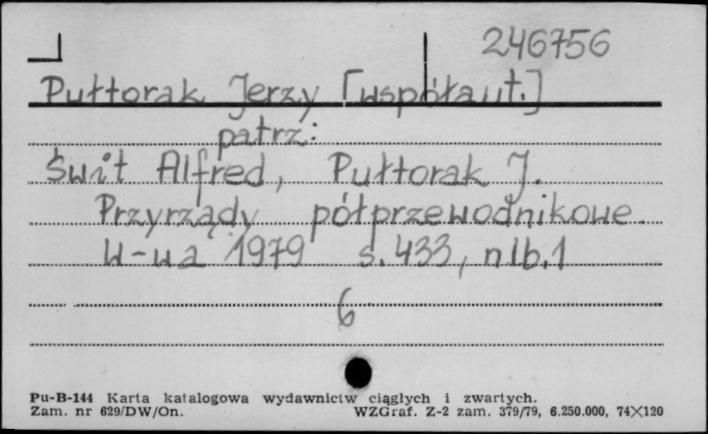 246756
Pułtorak Jerzy [współaut.]
patrz:
Świt Alfred, Pułtorak J.
Przyrządy półprzewodnikowe
W-wa 1979 s. 433, nlb. 1
6
Pu-B-144 Karta katalogowa wydawnictw ciągłych i zwartych.
Zam. nr 629/DW/On. WZGraf. Z-2 zam. 379/79, 6.250.000, 74×120